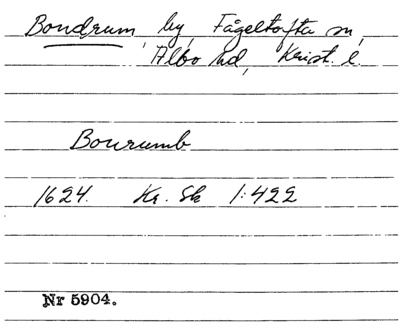 Bondrum, by, Fågeltofta sn,
Albo hd, Krist. l.
Bourumb
1624. Kr. Sk 1:422
Nr 5904.